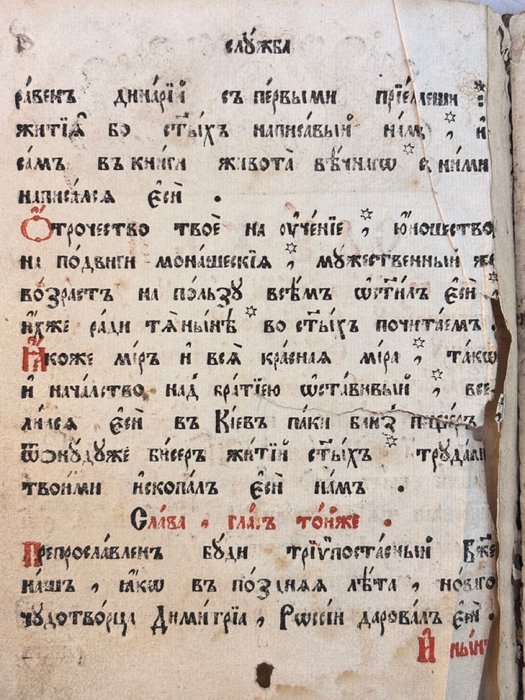 слꙋ́жба
ра́венъ дина́рїй съ пе́рвыми прїе́млеши :
житїѧ̀ бо ст҃ы́хъ написа́вый на́мъ , и҆
са́мъ въ кни́ги живота̀ вѣ́чнагѡ с ни́ми
написа́лсѧ є҆сѝ .
Ѻ҆́трочество твоѐ на ᲂу҆че́нїе , ю҆́ношество
на по́двиги мона́шескїѧ , мꙋ́жественный же
во́зрастъ на по́льзꙋ всѣ́мъ ѡ҆ста́вилъ є҆сѝ ,
и҆́хже ра́ди тѧ̀ ны́нѣ во ст҃ы́хъ почита́емъ .
Ꙗ҆́коже мі́ръ и҆ всѧ̑ кра̑снаѧ мі́ра , та́кѡ
и҆ нача́лство над̾ бра́тїею ѡ҆ста́вивый , все
ли́лсѧ є҆сѝ въ Кі́евъ па́ки бли́з̾ пеще́ръ ,
ѿню́дꙋже би́серъ жи́тїй ст҃ы́хъ трꙋда́ми
твои́ми и҆скопа́лъ є҆сѝ на́мъ .
Сла́ва , гла́съ то́йже .
Препросла́вленъ бꙋ́ди трїѵпоста́сный Бж҃е
на́шъ , ꙗ҆́кѡ въ по́зднѧѧ лѣ́та , но́ваго
чꙋдотво́рца Дими́трїа , Рѡссі́и дарова́лъ є҆сѝ .
И҆ ны́нѣ